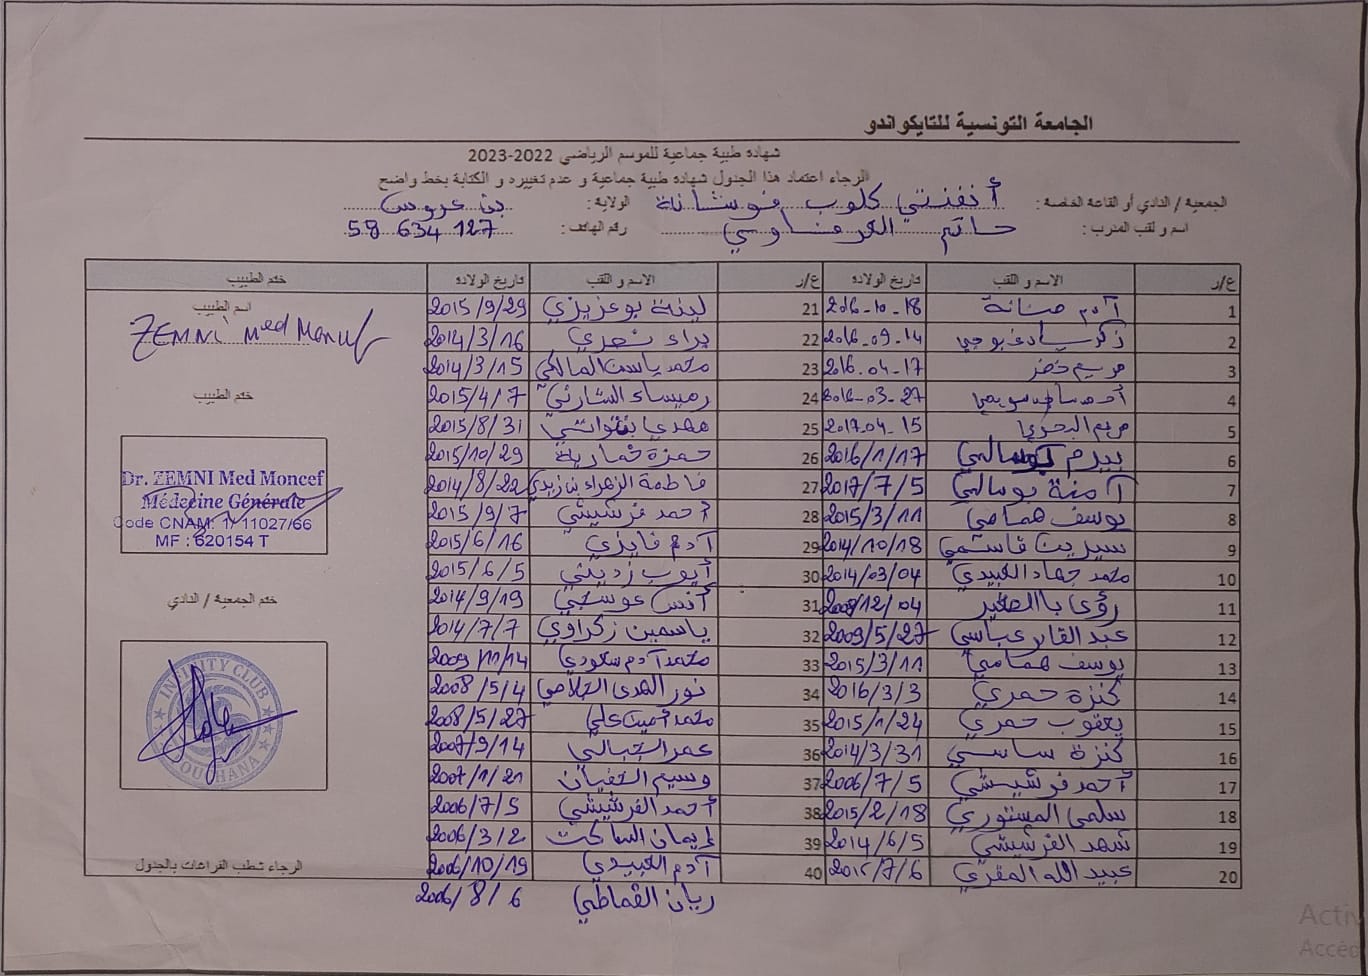 الجامعة التونسية للتايكواندو
شهادة طبية جماعية للموسم الرياضي 2022-2023
الرجاء اعتماد هذا الجدول شهادة طبية جماعية و عدم تغييره و الكتابة بخط واضح
الجمعية / النادي أو القاعة الخاصة : أنفنتي كلوب فوشانة الولاية : بن عروس
اسم و لقب المدرب : حاتم رقم الهاتف : 58 634 127
ع/ر الاسم و اللقب تاريخ الولادة ع/ر الاسم و اللقب تاريخ الولادة ختم الطبيب
1 آدم 2016-10-18 21 لينة بوعزيزي 2015/9/29
2 2016-09-14 22 براء 2014/3/16
3 مريم خضر 2016-04-17 23 محمد ياسين المالكي 2014/3/15
4 2016-03-27 24 رميساء 2015/4/7
5 مريم البحري 2017-04-15 25 مهدي 2015/8/31
6 بيرم بوسالمي 2016/1/17 26 حمزة خمارية 2015/10/29
7 آمنة بوسالمي 2017/7/5 27 فاطمة الزهراء بن زيدي 2014/8/22
8 يوسف همامي 2015/3/11 28 أحمد فرشيشي 2015/9/7
9 سيرين قاسمي 2014/10/18 29 آدم فايزي 2015/6/16
10 محمد جهاد العبيدي 2014/03/04 30 أيوب زديني 2015/6/5
11 رؤى بالصغير 2008/12/04 31 أنس عوسجي 2014/9/19
12 عبد القادر عباسي 2009/5/27 32 ياسمين زكراوي 2014/7/7
13 يوسف همامي 2015/3/11 33 محمد آدم سعودي 2009/11/14
14 كنزة حمدي 2016/3/3 34 نور الهدى 2008/5/4
15 يعقوب حمدي 2015/1/24 35 محمد أمين علي 2008/5/27
16 كنزة ساسي 2014/3/31 36 عمر الجبالي 2007/9/14
17 أحمد فرشيشي 2006/7/5 37 وسيم 2007/1/21
18 سلمى المستوري 2015/2/18 38 أحمد الفرشيشي 2006/7/5
19 شهد الفرشيشي 2014/6/5 39 إيمان الساكت 2006/3/2
20 عبيد الله المقري 2015/7/6 40 آدم العبيدي 2006/10/19
ريان القماطي 2006/8/6
اسم الطبيب
ZEMNI Med Moncef
ختم الطبيب
Dr. ZEMNI Med Moncef
Médecine Générale
Code CNAM: 1/11027/66
MF : 620154 T
ختم الجمعية / النادي
INFINITY CLUB
FOUCHANA
الرجاء شطب الفراغات بالجدول
Activ
Accéd